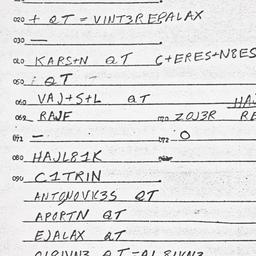 020 + QT = VINT3REPALAX
030 —
040 KARS+N QT C+ERES+N8ES
050 : QT
060 VAJ+S+L QT HAJ
062 RAJF 070 ZOJ3R RE
071 — 072 0
080 HAJL81K
090 C1TRIN
ANTONOVK3S QT
APORTN QT
EJALAX QT